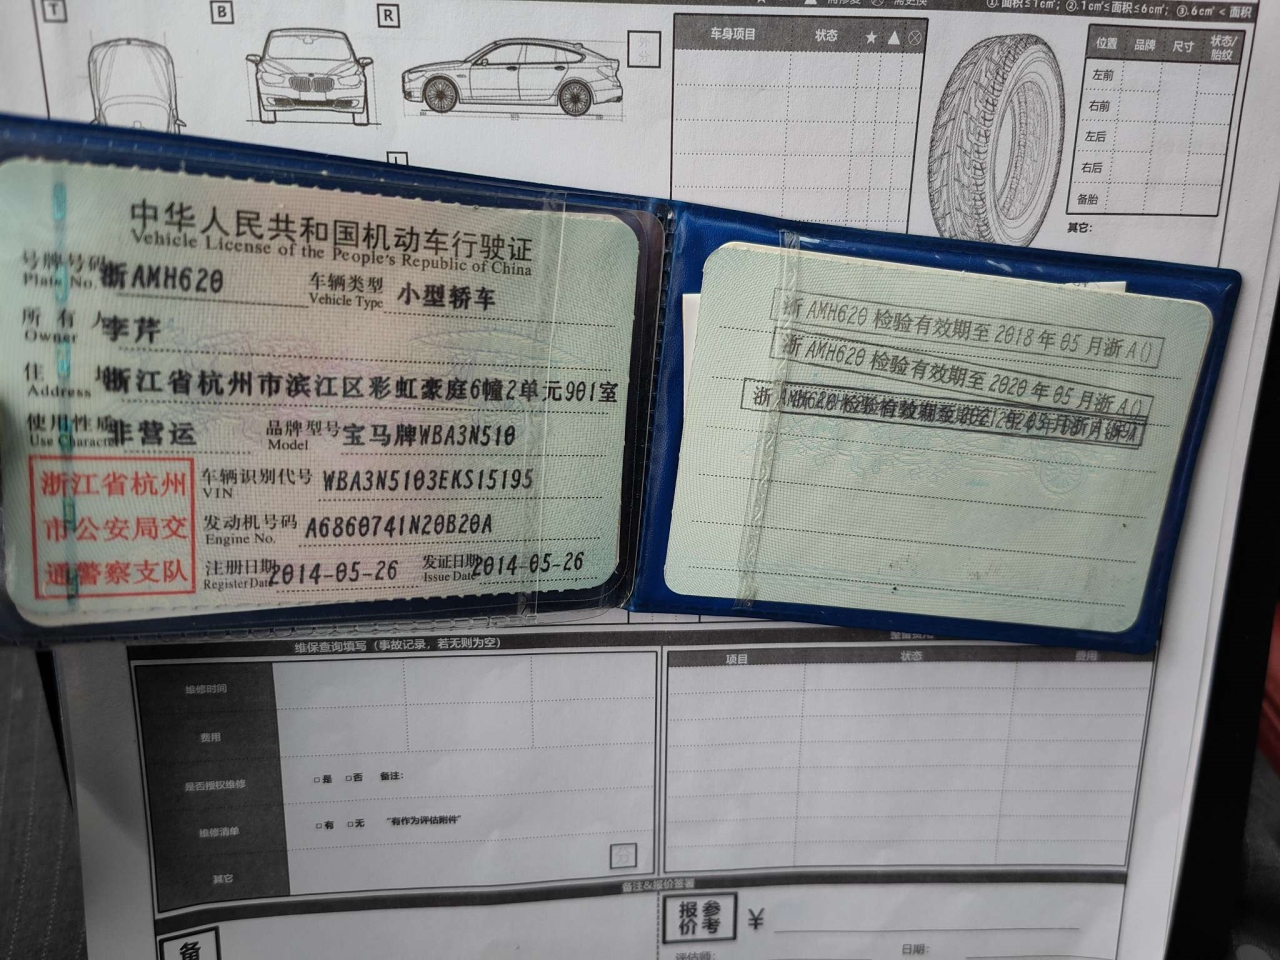 T
B
R
①.面积≤1cm²; ②.1cm²≤面积≤6cm²; ③.6cm²< 面积
车身项目 状态 ★ ▲ ⊗
位置 品牌 尺寸 状态/胎纹
左前
右前
左后
右后
备胎
其它:
中华人民共和国机动车行驶证
Vehicle License of the People's Republic of China
号牌号码 浙AMH620 车辆类型 小型轿车
Plate No. Vehicle Type
所有人 李芹
Owner
住址 浙江省杭州市滨江区彩虹豪庭6幢2单元901室
Address
使用性质 非营运 品牌型号 宝马牌WBA3N510
Use Character Model
浙江省杭州
市公安局交
通警察支队
车辆识别代号 WBA3N5103EKS15195
VIN
发动机号码 A6860741N20B20A
Engine No.
注册日期 2014-05-26 发证日期 2014-05-26
Register Date Issue Date
浙AMH620检验有效期至2018年05月浙A()
浙AMH620检验有效期至2020年05月浙A()
维保查询填写（事故记录，若无则为空）
维修时间
费用
是否授权维修 □是 □否 备注:
维修清单 □有 □无 "有作为评估附件"
其它
项目 状态 费用
备注&报价签署
备
报价参考 ¥
评估师: 日期: